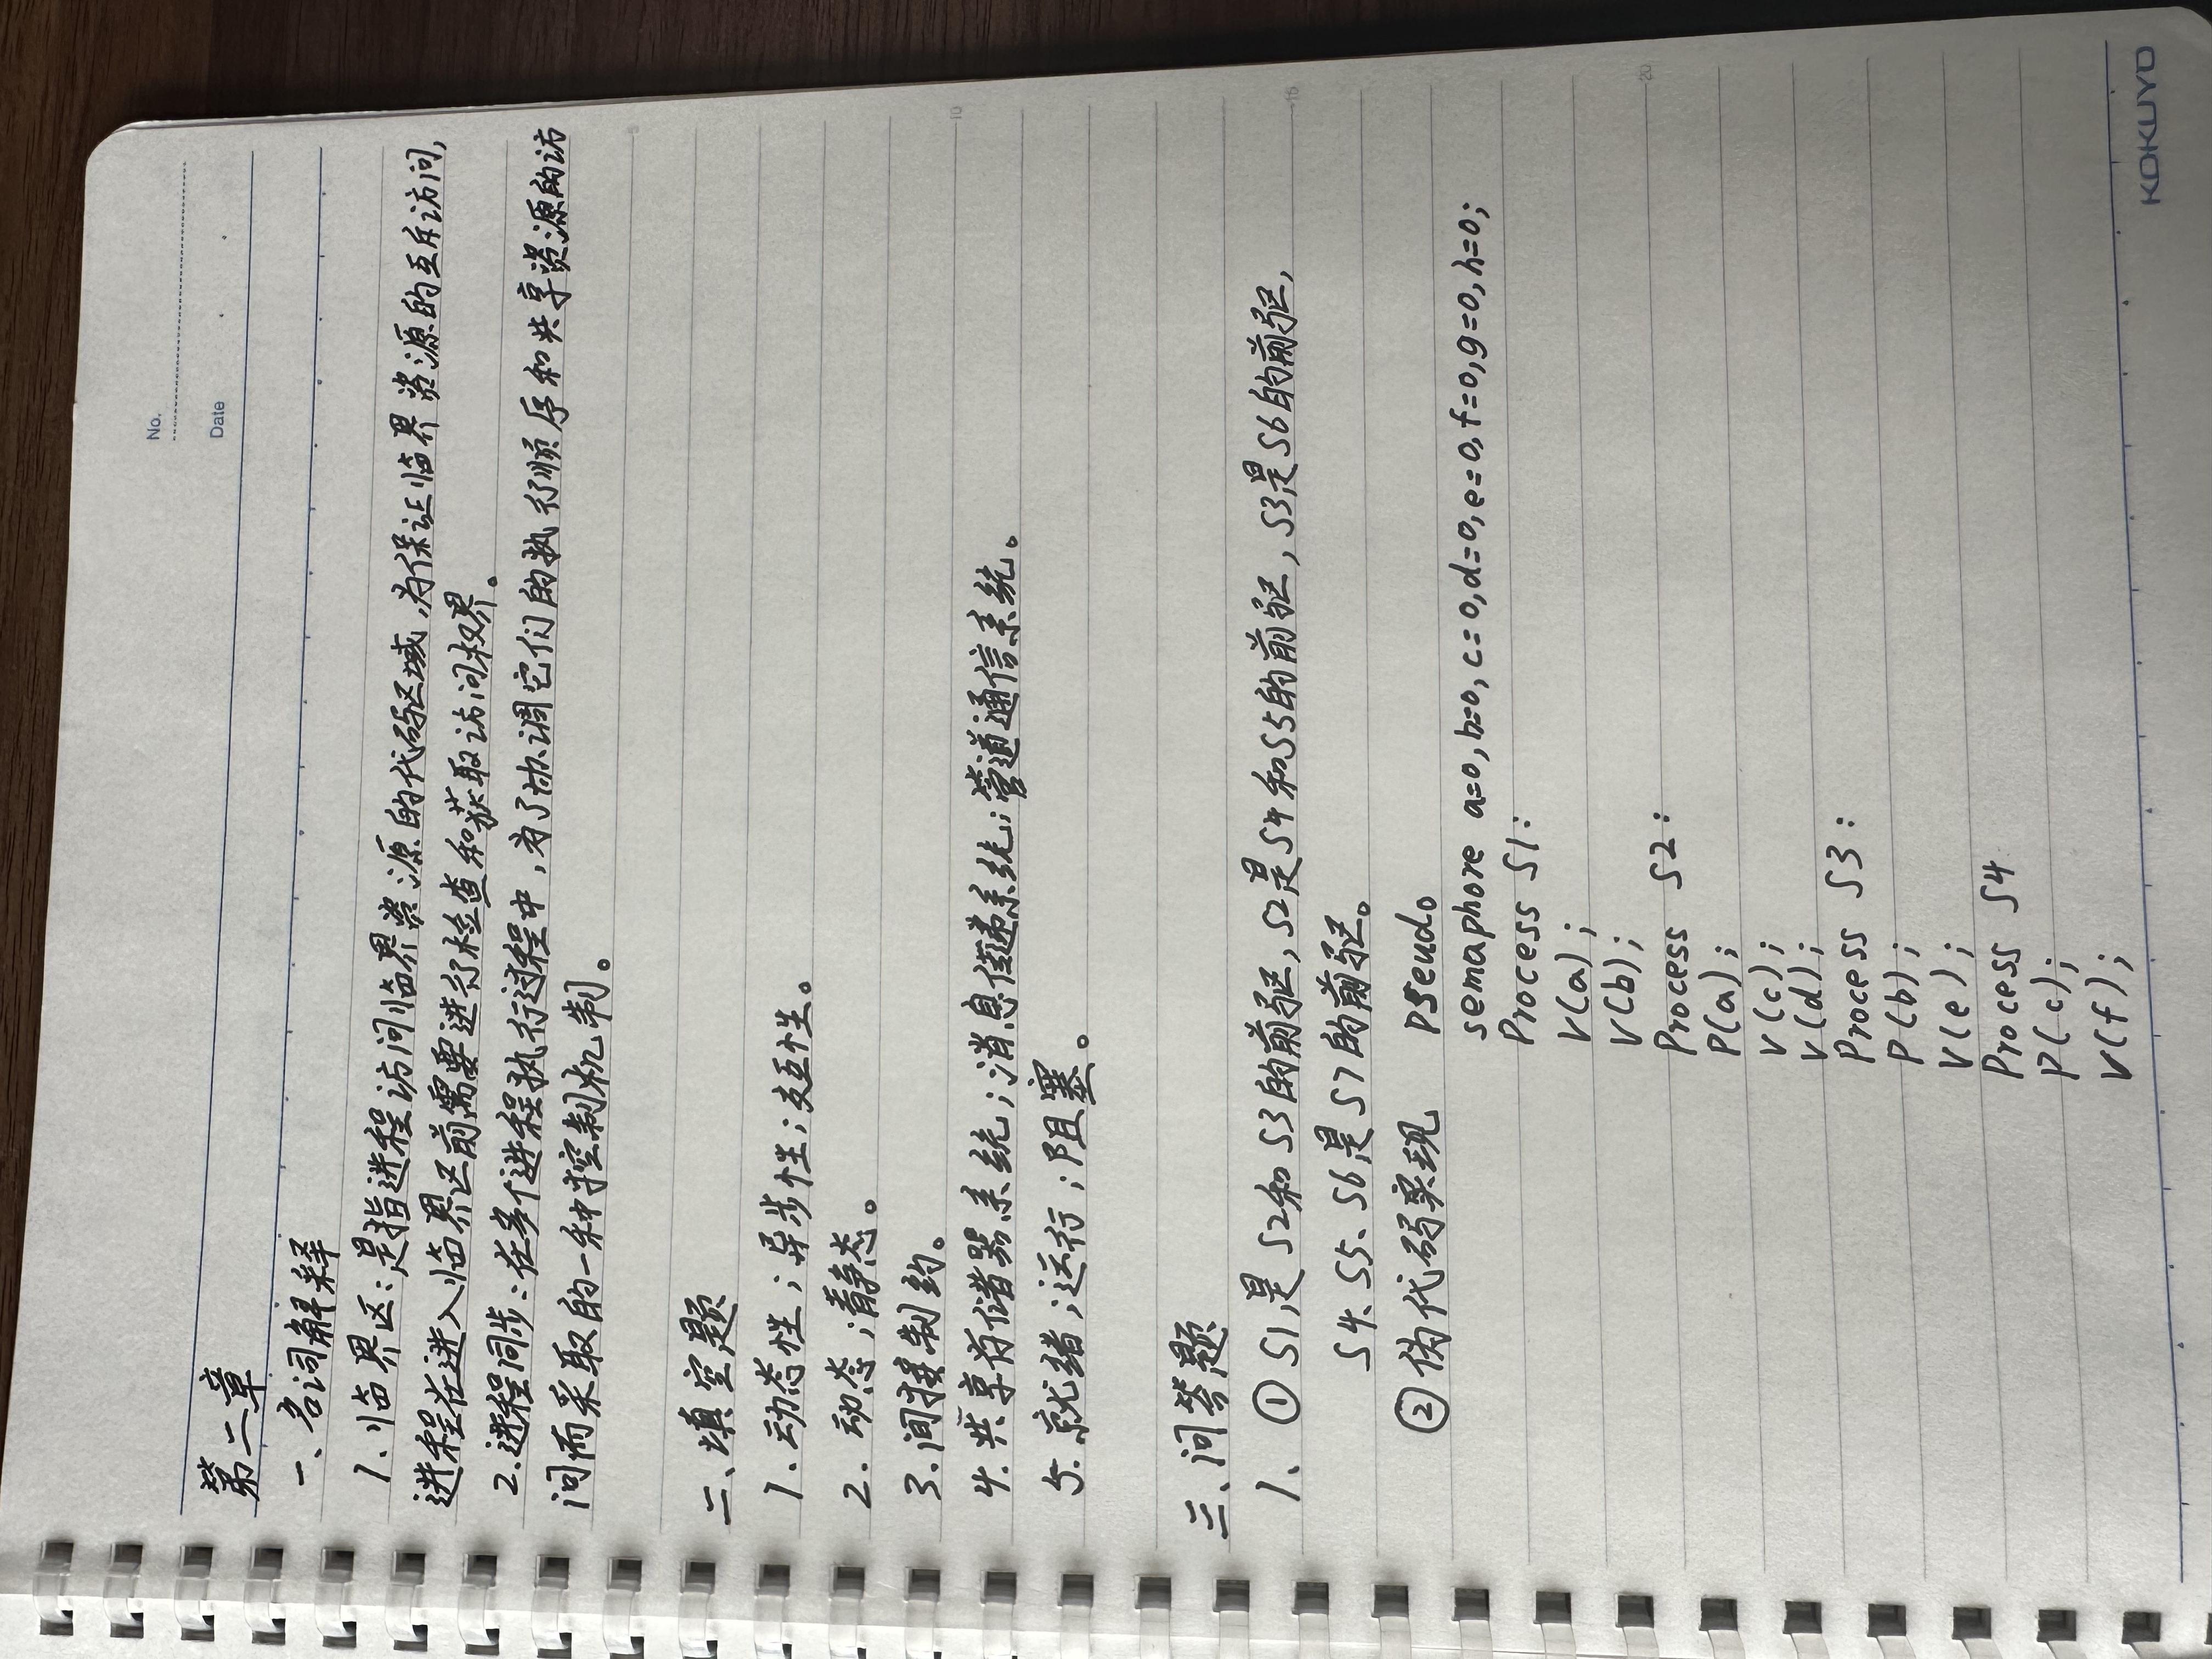 No.
Date
第二章
一、名词解释
1.临界区:是指进程访问临界资源的代码区域,为保证临界资源的互斥访问,
进程在进入临界区前需要进行检查和获取访问权界。
2.进程同步:在多个进程执行过程中,为了协调它们的执行顺序和共享资源的访
问而采取的一种控制机制。
5
二、填空题
1.动态性;异步性;交互性。
2.动态;静态。
3.间接制约。
10
4.共享存储器系统;消息传递系统;管道通信系统。
5.就绪;运行;阻塞。
三、问答题
1、①S1是S2和S3的前驱,S2是S4和S5的前驱,S3是S6的前驱,
15
S4、S5、S6是S7的前驱。
②伪代码实现 pseudo
semaphore a=0,b=0,c=0,d=0,e=0,f=0,g=0,h=0;
Process S1:
V(a);
V(b);
20
Process S2:
P(a);
V(c);
V(d);
Process S3:
P(b);
V(e);
Process S4
P(c);
V(f);
KOKUYO